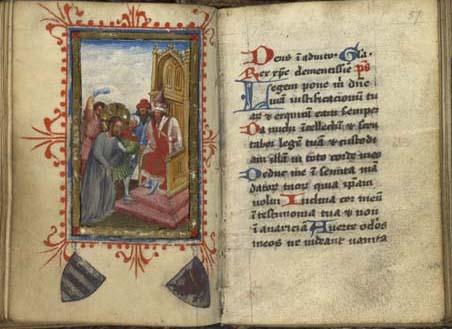 57
Deus i adiuto. Gla.
Rex xpe clementissie ps
Legem pone m dne
uiam iustificationu tu
aꝝ & exquiram eam semper
Da michi itellectu & scru
tabor legem tuam & custodi
am illam in toto corde meo
Deduc me i semita man
datoꝝ tuoꝝ quia ipam
uolui Inclina cor meu
i testimonia tua & non
i auaricia Auerte oclos
meos ne uideant uanita